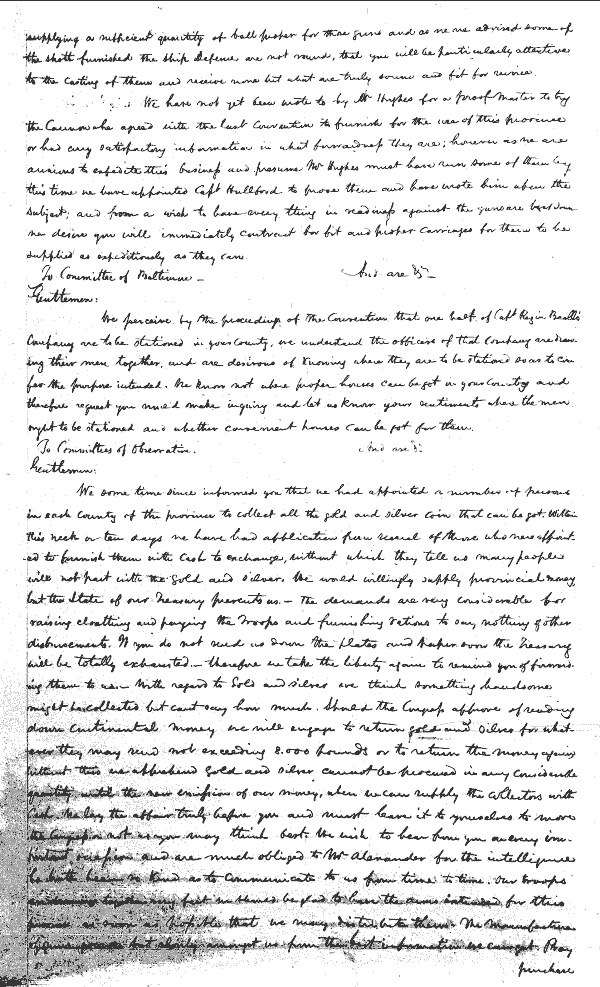 supplying a sufficient quantity of ball proper for those guns and as we are advised some of
the shott furnished the Ship Defense are not round, that you will be particularly attentive
to the casting of them and receive none but what are truly round and fit for service.
We have not yet been wrote to by Mr Hughes for a proof Master to try
the Cannon he agreed with the last Convention to furnish for the use of this province
or had any satisfactory information in what forwardness they are; however as we are
anxious to expedite this business and presume Mr Hughes must have run some of them by
this time we have appointed Capt Hullford to prove them and have wrote him upon the
subject; and from a wish to have every thing in readiness against the guns are
we desire you will immediately contract for fit and proper carriages for them to be
supplied as expeditiously as they can.
And are &c
To Committee of Baltimore
Gentlemen:
We perceive by the proceedings of the Convention that one half of Capt Rezin Beall's
Company are to be stationed in your County, we understand the officers of that Company are draw
ing their men together, and are desirous of knowing where they are to be stationed so as to
for the purpose intended. We know not where proper houses can be got in your Country and
therefore request you would make inquiry and let us know your sentiments where the men
ought to be stationed and whether convenient houses can be got for them.
And are &c
To Committees of Observation.
Gentlemen:
We some time since informed you that we had appointed a number of persons
in each County of the province to collect all the gold and silver coin that can be got. Within
this week or ten days we have had application from several of those who were appoint
ed to furnish them with Cash to exchange, without which they tell us many people
will not part with the Gold and Silver. We would willingly supply provincial money
but the State of our Treasury prevents us. — The demands are very considerable for
raising cloathing and paying the Troops and furnishing rations to say, nothing of other
disbursements. If you do not send us down the plates and paper soon the Treasury
will be totally exhausted — therefore we take the liberty again to remind you of forward
ing them to us. With regard to Gold and silver we think something handsome
might be collected but cant say how much. Should the Congress approve of sending
down Continental money we will engage to return gold and silver for what
ever they may send not exceeding 8.000 pounds or to return the money again
without this we apprehend Gold and silver cannot be procured in any considerable
quantity until the new emission of our money, when we can supply the Collectors with
Cash. We lay the affair truly before you and must leave it to yourselves to move
the Congress or not as you may think best. We wish to hear from you on every im
portant occasion and are much obliged to Mr Alexander for the intelligence
he hath been so kind as to communicate to us from time to time. Our troops
very fast we should be glad to have the arms intended for this
province as soon as possible that we may distribute them. The Manufacture
of guns but slowly amongst us from the best information we can get. Pray
purchase